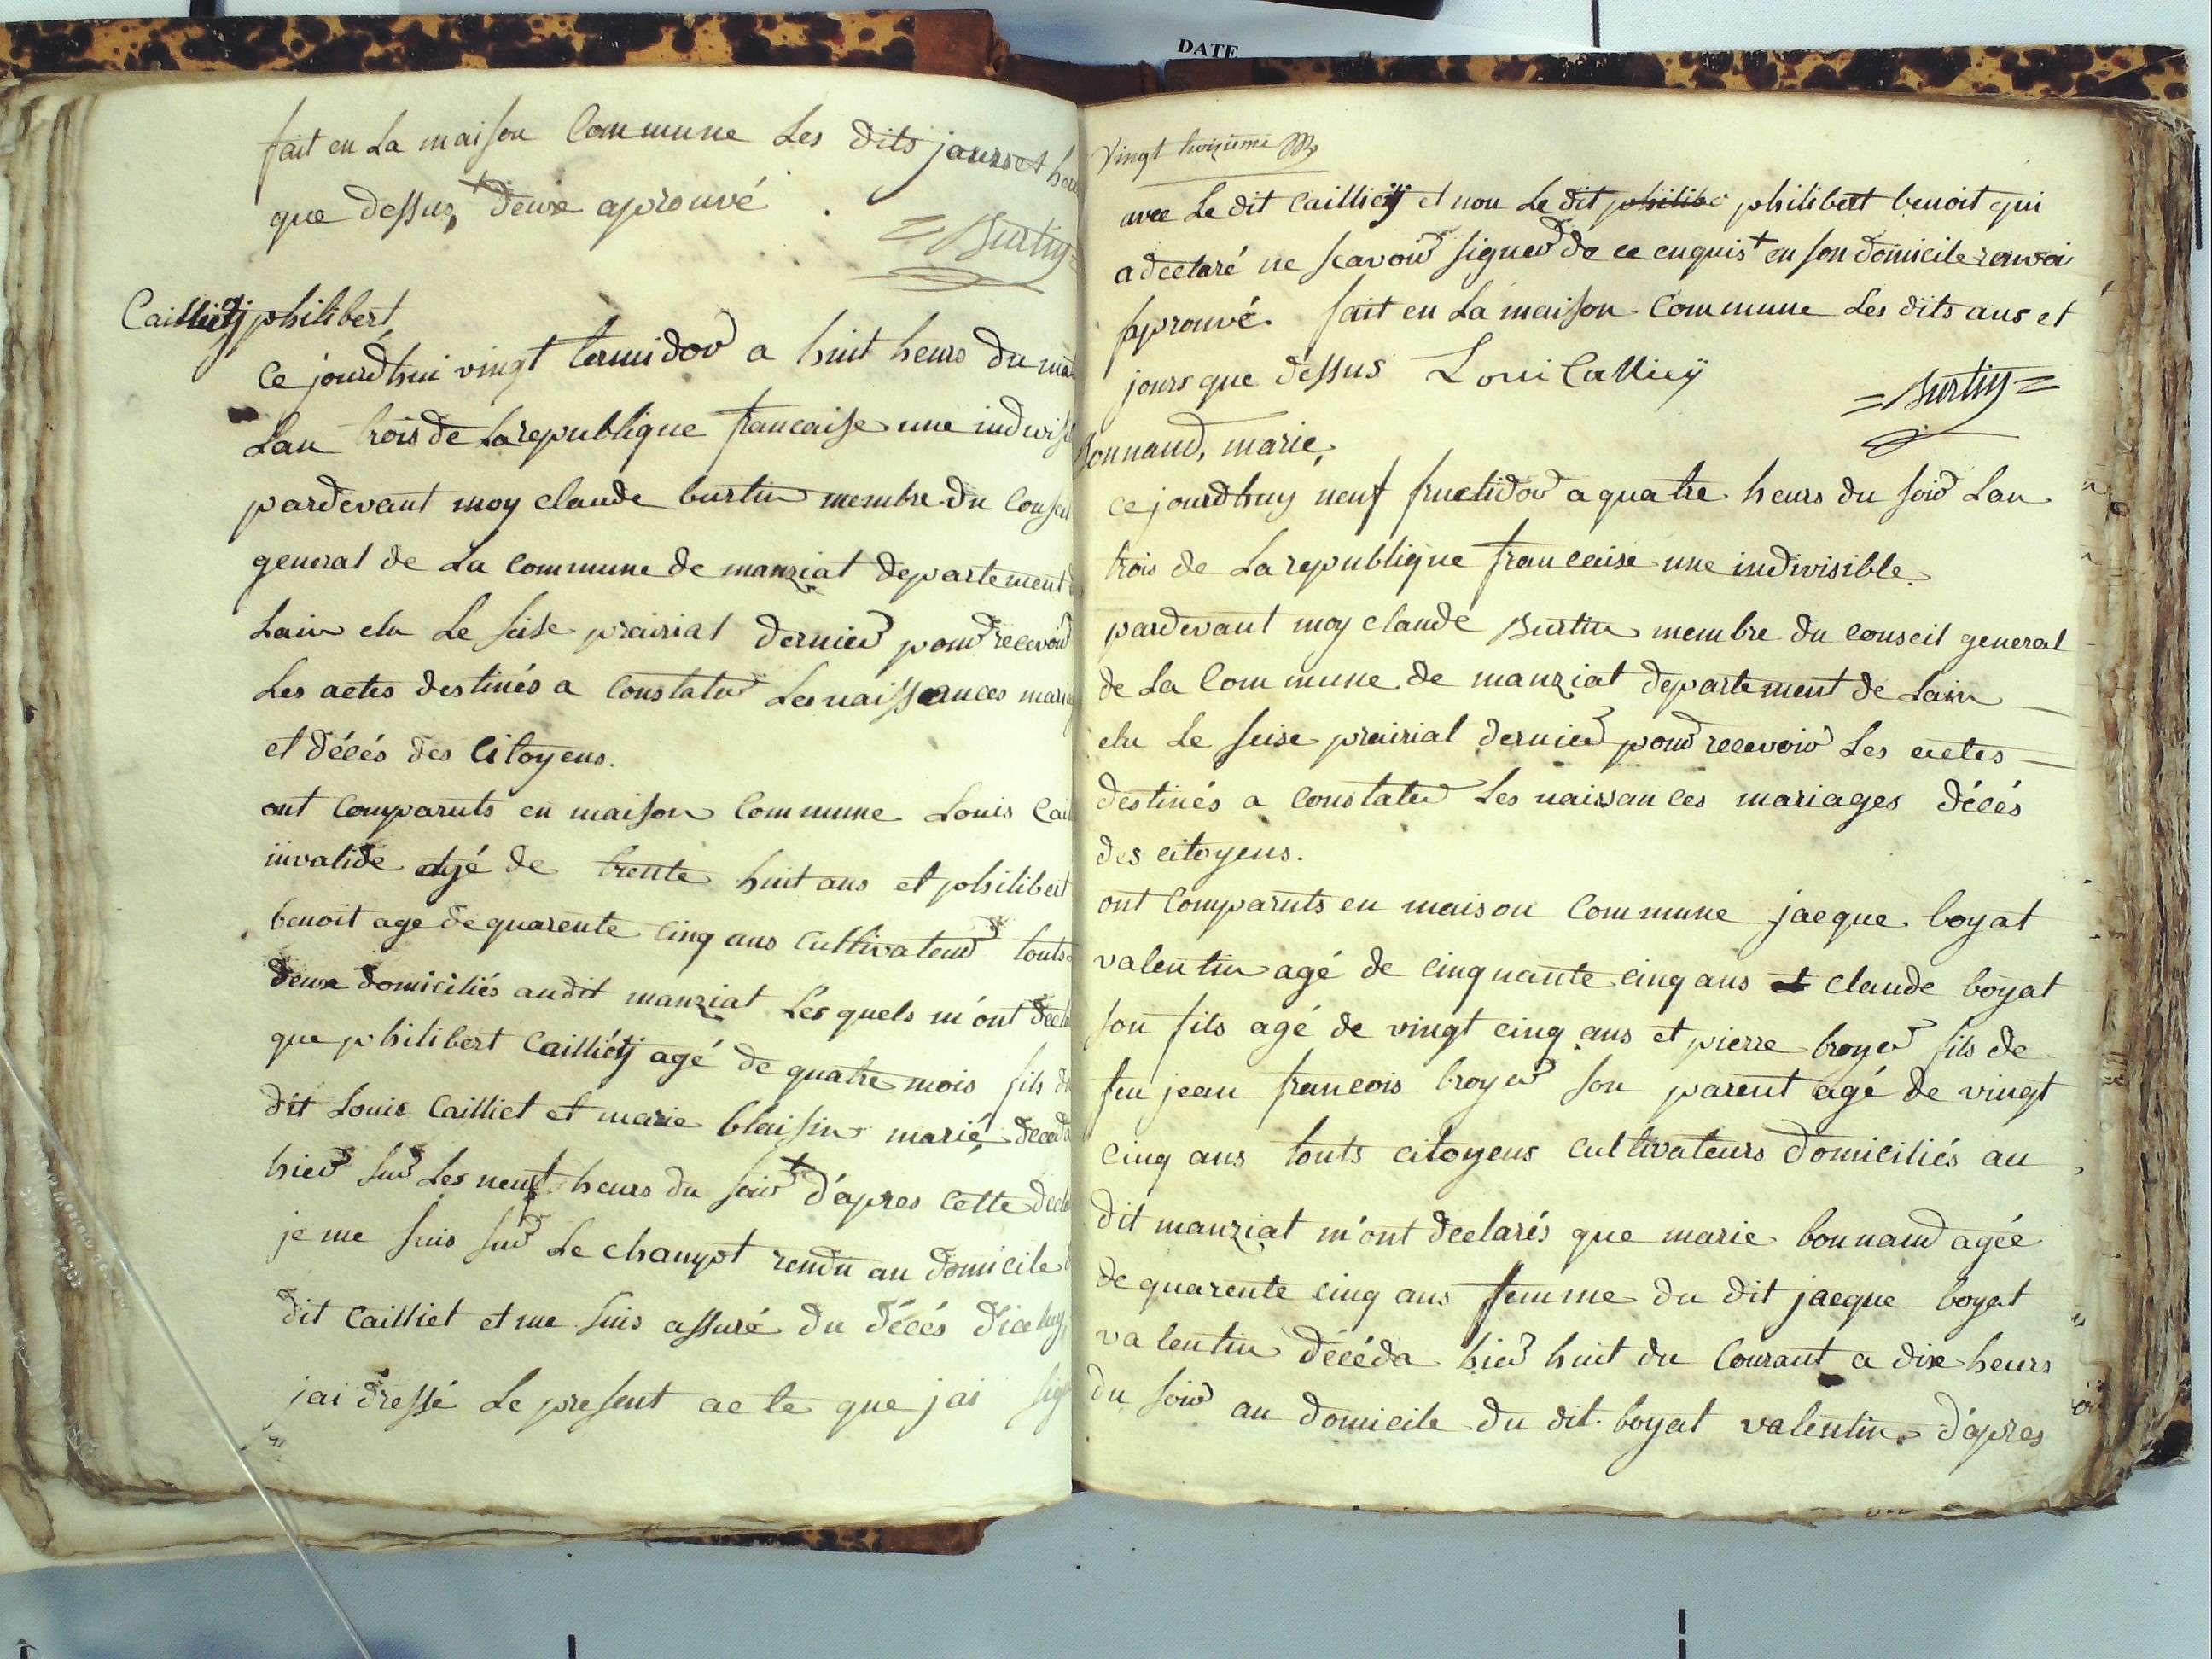 DATE
fait en La maison Commune Les dits jours et
que dessus, + deux aprouvé.
= Burtin =
Cailliety philibert
Ce jourdhui vingt termidor a huit heurs du
Lan trois de La republique francaise une
pardevant moy claude burtin membre du
general de La Commune de manziat departement
Lain elu Le seise prairial dernier pour recevoir
Les actes destinés a Constater Les naissances
et décés des Citoyens.
ont Comparuts en maison Commune Louis
invalide agé de trente huit ans et philibert
benoit age de quarente cinq ans Cultivateur touts
deux domiciliés audit manziat Les quels m'ont
que philibert Cailliéty agé de quatre mois fils
dit Louis Cailliet et marie blaisin marié,
hier sur Les neuf heurs du soir + d'apres Cette
je me suis sur Le champt rendu au domicile
dit Cailliet et me suis assuré du décés diceluy,
jai dressé Le present acte que jai
Vingt troizieme
avec Le dit Cailliety et non Le dit philibe philibert benoit qui
a declaré ne scavoir signer de ce enquis + en son domicile renvoi
aprouvé. fait en La maison Commune Les dits ans et
jours que dessus Loui Calliey
= Burtin =
Bonnand, marie,
ce jourdhuy neuf fructidor a quatre heurs du soir Lan
trois de La republique francaise une indivisible.
pardevant moy claude Burtin membre du conseil general
de La Commune de manziat departement de Lain
elu Le seise prairial dernier pour recevoir Les actes
destinés a Constater Les naissances mariages décés
des citoyens.
ont Comparuts en maison Commune jacque boyat
valentin agé de cinquante cinq ans et claude boyat
son fils agé de vingt cinq ans et pierre broyer fils de
feu jean francois broyer son parent agé de vingt
cinq ans touts citoyens Cultivateurs domiciliés au
dit manziat m'ont declarés que marie bonnand agée
de quarente cinq ans femme du dit jacque boyat
valentin décéda hier huit du Courant a dix heurs
du soir au domicile du dit boyat valentin, d'apres